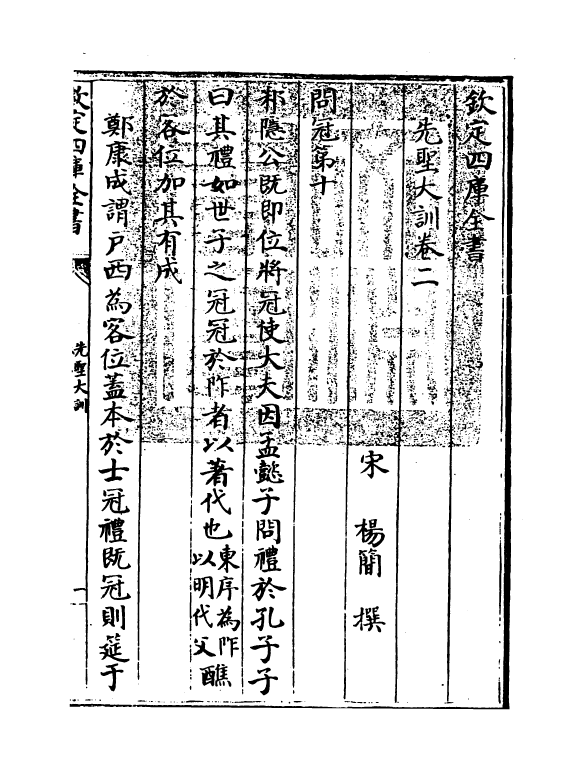 欽定四庫全書
先聖大訓卷二
宋 楊簡 撰
問冠第十
邾隠公既即位將冠使大夫因孟懿子問禮於孔子子
曰其禮如世子之冠冠於阼者以著代也東序為阼以明代父醮
於客位加其有成
鄭康成謂戶西為客位蓋本於士冠禮既冠則筵于
欽定四庫全書
先聖大訓
一